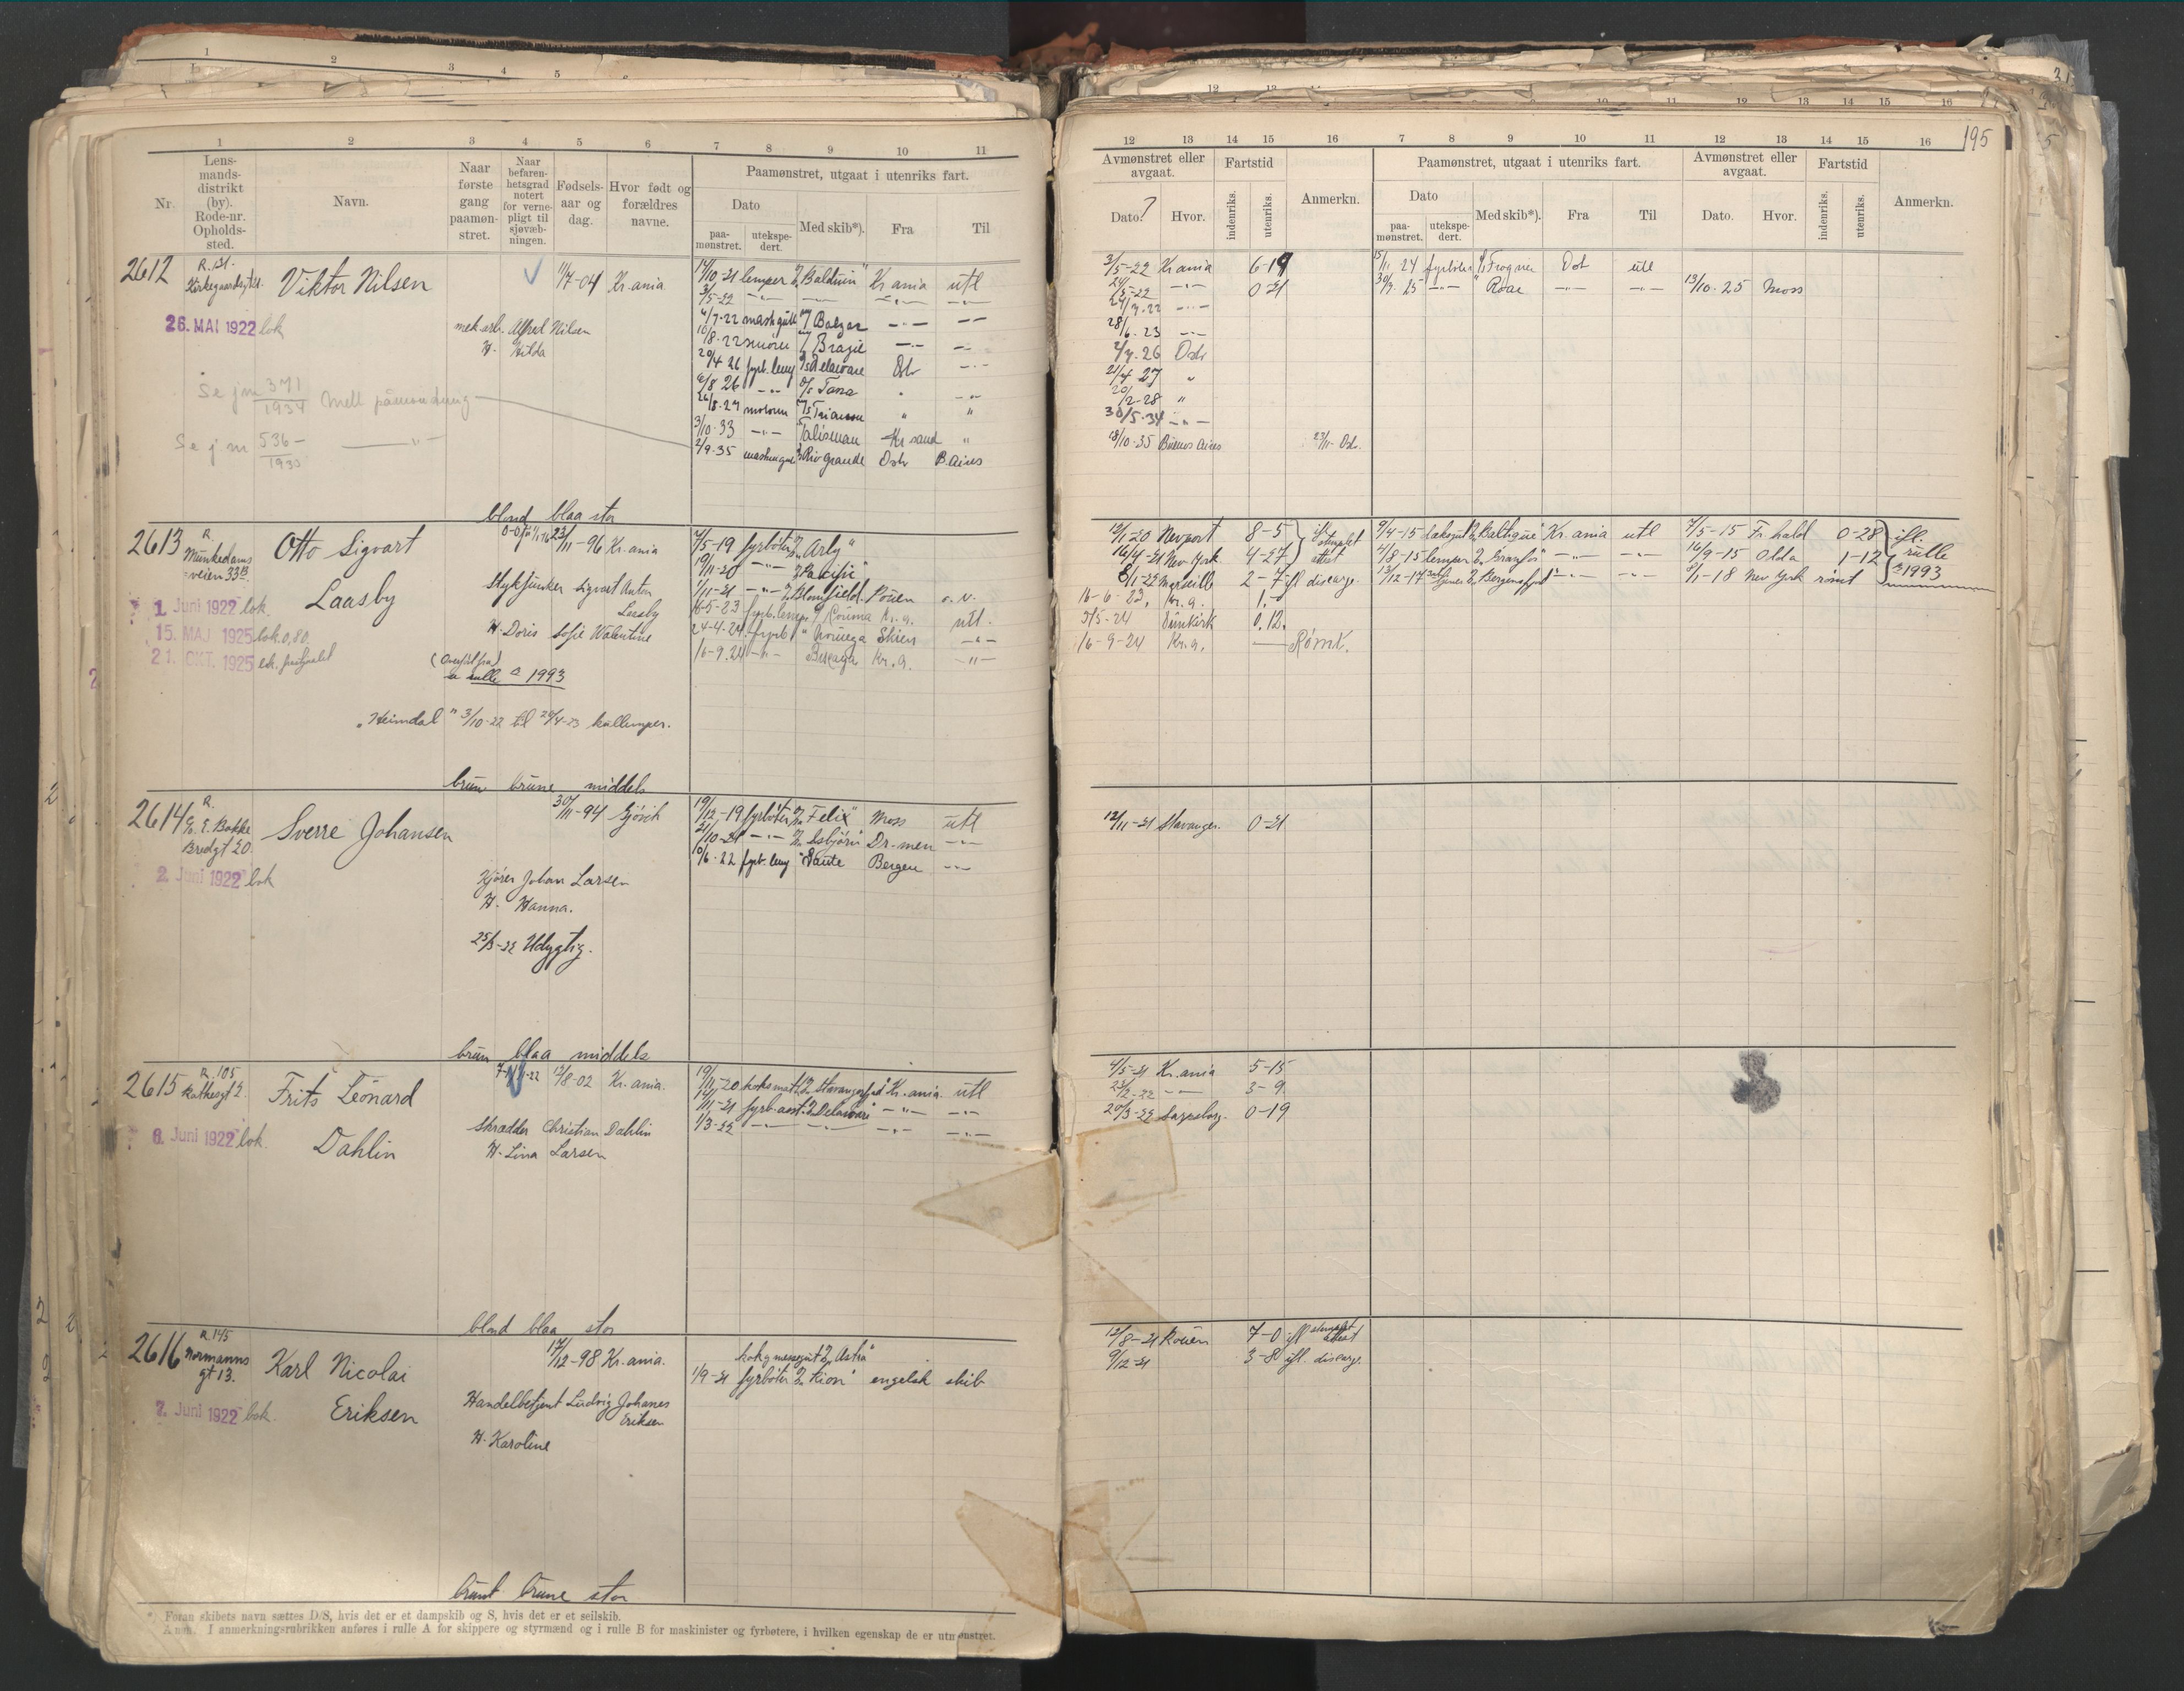 195
1 2 3 4 5 6 7 8 9 10 11
Nr.
Lens-
mands-
distrikt
(by).
Rode-nr.
Opholds-
sted.
Navn.
Naar
første
gang
paamøn-
stret.
Naar
befaren-
hetsgrad
notert
for verne-
pligt til
sjøvæb-
ningen.
Fødsels-
aar og
dag.
Hvor født og
forældres
navne.
Paamønstret, utgaat i utenriks fart.
Dato
paa-
mønstret.
utekspe-
dert.
Med skib*).
Fra
Til
12 13 14 15 16 7 8 9 10 11 12 13 14 15 16
Avmønstret eller
avgaat.
Dato.
Hvor.
Fartstid
indenriks.
utenriks.
Anmerkn.
Paamønstret, utgaat i utenriks fart.
Dato
paa-
mønstret.
utekspe-
dert.
Med skib*).
Fra
Til
Avmønstret eller
avgaat.
Dato.
Hvor.
Fartstid
indenriks.
utenriks.
Anmerkn.
2612
R. 131.
Viktor Nilsen
1/7-04 Kr.ania
26. MAI 1922 bok
mek.arb. Alfred Nilsen
H. Hilda
Se jm 371/1934
Se jm 536/1935
14/10-21 lemper "Balduin" Kr ania utl
3/5-22
4/7-22 Balzac
10/8-22 smører Brazil
29/4 26 fyrb.lemp Delaware Osl
6/8 26 Tana
26/8-27 motorm Trianon
3/10-33 Talisman Kr sand
2/9-35 Rio Grande Oslo B.Aires
3/5-22 Kr ania 6-19
24/5-22 0-21
28/6-23
2/7-26 Oslo
21/4 27
20/2-28
30/5-34
18/10-35 Buenos Aires 23/11- Osl.
15/11 24 fyrbøter Frogner Osl utl
30/9-25 Roar
13/10-25 Moss
blond blaa stor
2613
R.
Munkedams
veien 33 B.
Otto Sigvart
Laasby
23/11-96 Kr.ania
1. Juni 1922 bok.
15. MAI 1925 bok 0,80
21. OKT. 1925
Stykjunker Sigvart Anton
Laasby
H. Doris Sofie Valentine
(Overført fra)
rulle a 1993
"Heimdal" 3/10-22 til 20/4-23 kullemper.
4/5-19 fyrbøter "Arly"
19/11-20 "Pacific"
1/11-21 Blomfield Rouen o.N.
16-5-23 fyrb.lemp. Rouma Kr.a. utl.
24-4-24 fyrb. Noruega Skien
16-9-24 Kr.a.
12/1-20 Newport 8-5
16/4-21 New York 4-27
8/1-22 Marseille 2-7 ifl discarge.
16-6-23, Kr.a. 1.
5/5-24 Dunkirk 0.12.
16-9-24 Kr.a. Rømt.
9/4-15 Baltique Kr.ania utl
4/8-15 lemper Granfos
13/12-17 Bergensfjord
7/5-15 Fr.hald 0-28
16/9-15 Odda 1-12
8/1-18 New York rømt
ifl.
rulle
a 1993
brun brune middels
2614
R.
c/o E. Bakke
Bredgt 20
Sverre Johansen
30/11-94 Gjövik
2. Juni 1922 bok
Kjører Johan Larsen
H. Hanna.
25/3-22 Udygtig.
19/12-19 fyrbøter "Felix" Moss utl
21/10-21 "Isbjörn" Dr-men
10/6-22 fyrb.lemp Dante Bergen
12/11-21 Stavanger. 0-21
brun blaa middels
2615
R. 105
Rathkesgt 2
Frits Leonard
Dahlin
12/8-02 Kr.ania.
6. Juni 1922 bok.
Skrædder Christian Dahlin
H. Lina Larsen
19/11-20 koksmat Stavangerfjord Kr.ania. utl
14/11-21 fyrb.asst. "Delaware"
1/3-22
4/5-21 Kr.ania 5-15
23/2-22 3-9
20/3-22 Sarpsborg. 0-19
blond blaa stor
2616
R 145
Normanns
gt 13.
Karl Nicolai
Eriksen
17/12-98 Kr.ania.
7. Juni 1922 bok.
Handelbetjent Ludvig Johanes
Eriksen
H. Karoline
kok g messegut "Astra"
1/9-21 fyrbøter "Kion" engelsk skib
12/8-21 Rouen 7-0 ifl stemplet attest
9/12-21 3-8 ifl. discarge.
brunt brune stor
*) Foran skibets navn sættes D/S, hvis det er et dampskib og S, hvis det er et seilskib.
Anm. I anmerkningsrubrikken anføres i rulle A for skippere og styrmænd og i rulle B for maskinister og fyrbøtere, i hvilken egenskap de er utmønstret.